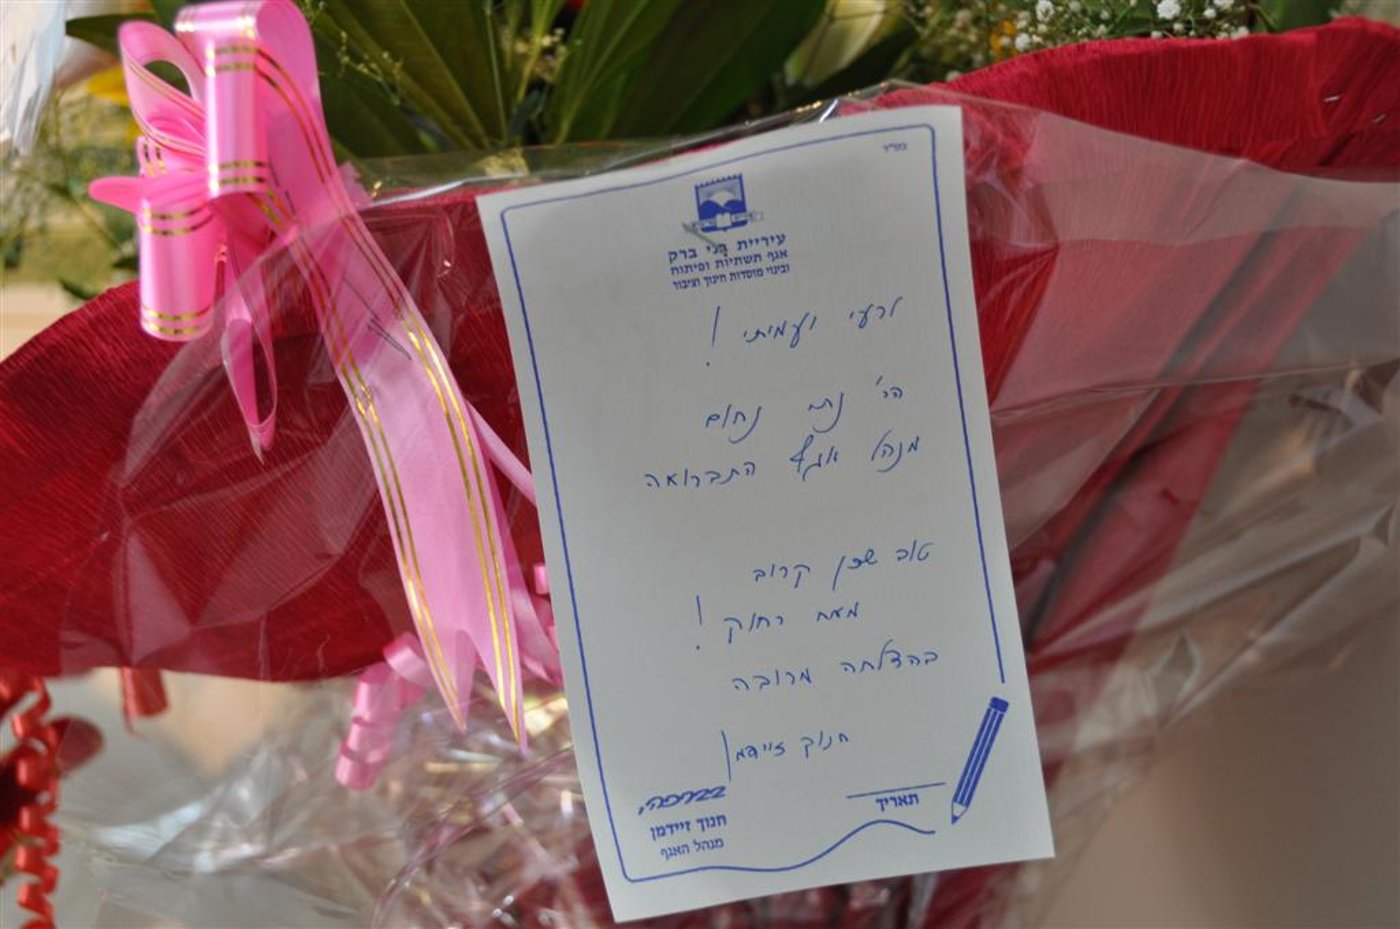 בס"ד
עיריית בני ברק
אגף תשתיות ופיתוח
ובינוי מוסדות חינוך וציבור
לרעי ועמיתי !
הר' נתי נחום
מנהל אגף התברואה
טוב שכן קרוב
מאח רחוק !
בהצלחה מרובה
חנוך זיידמן
תאריך
בברכה,
חנוך זיידמן
מנהל האגף